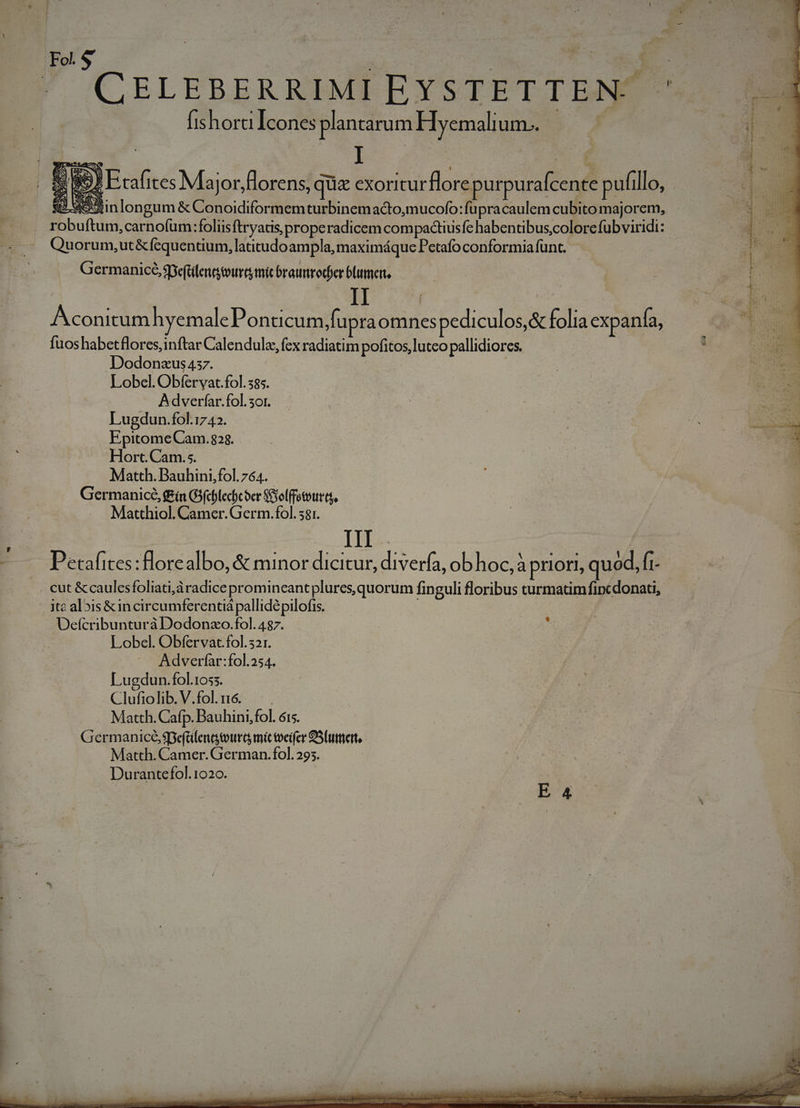 Fol. 5
CELEBERRIMI EYSTETTEN-
ſis horti Icones plantarum Hyemalium.
I
PEtaſites Major, florens, quæ exoritur flore purpuraſcente puſillo,
in longum & Conoidiformem turbinem acto, mucoſo: ſupra caulem cubito majorem,
robuſtum, carnoſum: foliis ſtryatis, prope radicem compactius ſe habentibus, colore ſubviridi:
Quorum, ut & ſequentium, latitudo ampla, maximáque Petaſo conformia ſunt.
Germanicè, Peſtilentzwurtz mit braunrother blumen.
II
Aconitum hyemale Ponticum, ſupra omnes pediculos, & folia expanſa,
ſuos habet flores, inſtar Calendulæ, ſex radiatim poſitos, luteo pallidiores.
Dodonæus 437.
Lobel. Obſervat. fol. 385.
Adverſar. fol. 301.
Lugdun. fol. 1742.
Epitome Cam. 828.
Hort. Cam. 5.
Matth. Bauhini, fol. 764.
Germanicè, Ein Gſchlecht der Wolffswurtz.
Matthiol. Camer. Germ. fol. 381.
III
Petaſites: flore albo, & minor dicitur, diverſa, ob hoc, à priori, quòd, ſi-
cut & caules foliati, à radice promineant plures, quorum ſinguli floribus turmatim ſint donati,
ita albis & in circumferentiâ pallidè piloſis.
Deſcribuntur à Dodonæo. fol. 487.
Lobel. Obſervat. fol. 321.
Adverſar: fol. 254.
Lugdun. fol. 1053.
Cluſio lib. V. fol. 116.
Matth. Caſp. Bauhini, fol. 615.
Germanicè, Peſtilentzwurtz mit weiſer Blumen.
Matth. Camer. German. fol. 295.
Durante fol. 1020.
E 4